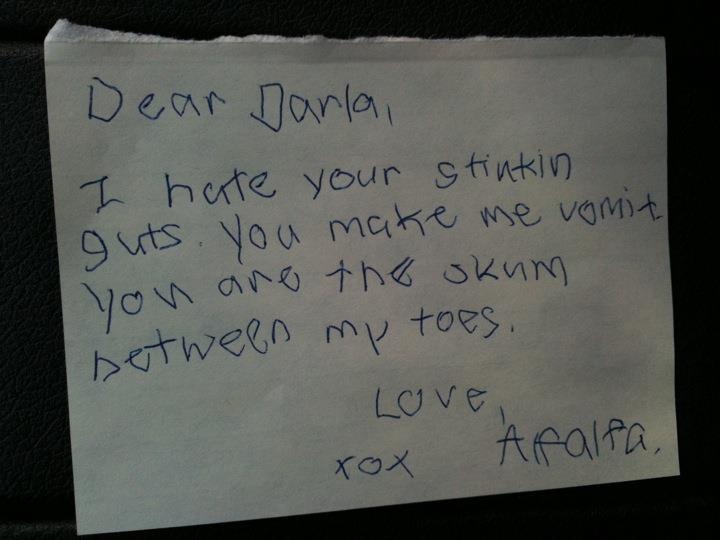 Dear Darla,
I hate your stinkin
guts. You make me vomit
you are the skum
between my toes.
Love,
xox Alfalfa.